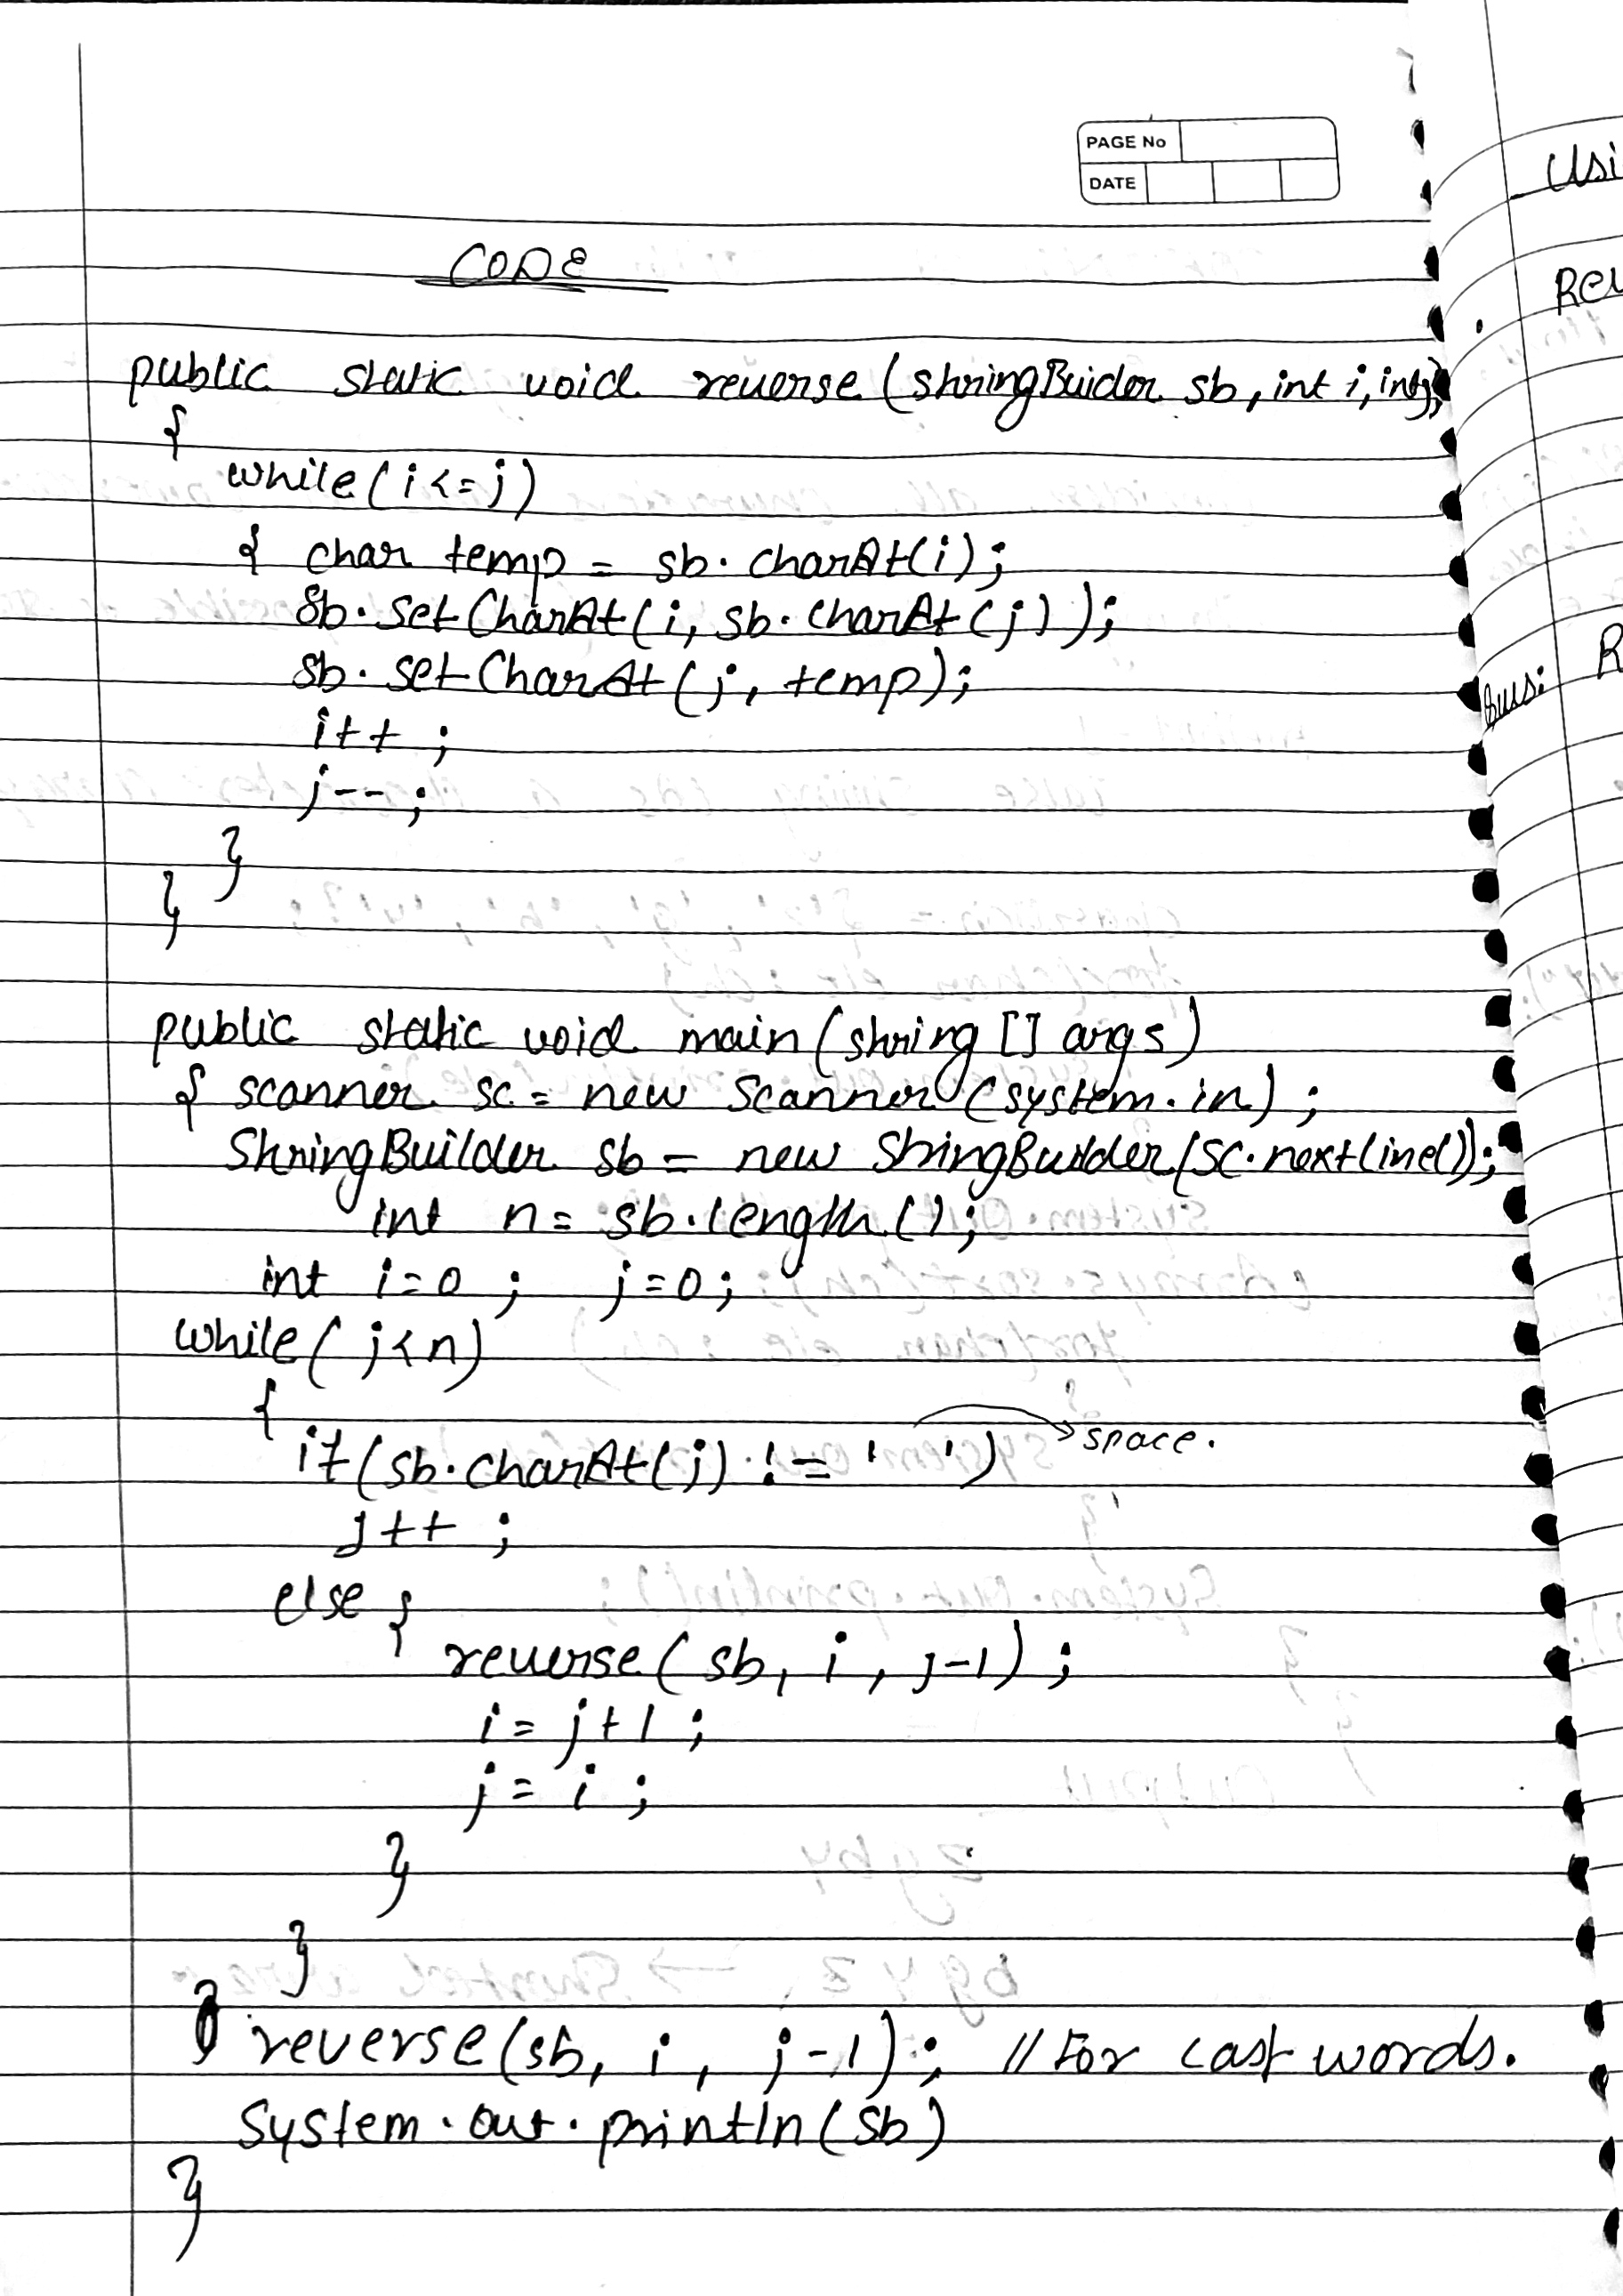 PAGE No
DATE
CODE
public static void reverse (stringBuider sb, int i, int j)
{
while(i<=j)
{ char temp = sb.charAt(i);
sb.setCharAt(i, sb.charAt(j));
sb.setCharAt(j, temp);
i++ ;
j-- ;
}
}
public static void main (string [] args)
{ scanner sc = new Scanner (system.in) ;
StringBuilder sb = new StringBuilder(sc.nextLine());
int n = sb.length();
int i=0 ; j=0 ;
while( j<n)
{
if(sb.charAt(j) != ' ') → space.
j++ ;
else {
reverse( sb, i , j-1) ;
i = j+1 ;
j = i ;
}
}
reverse(sb, i , j-1) ; // For last words.
System.out.println(sb)
}
Usi
Rev